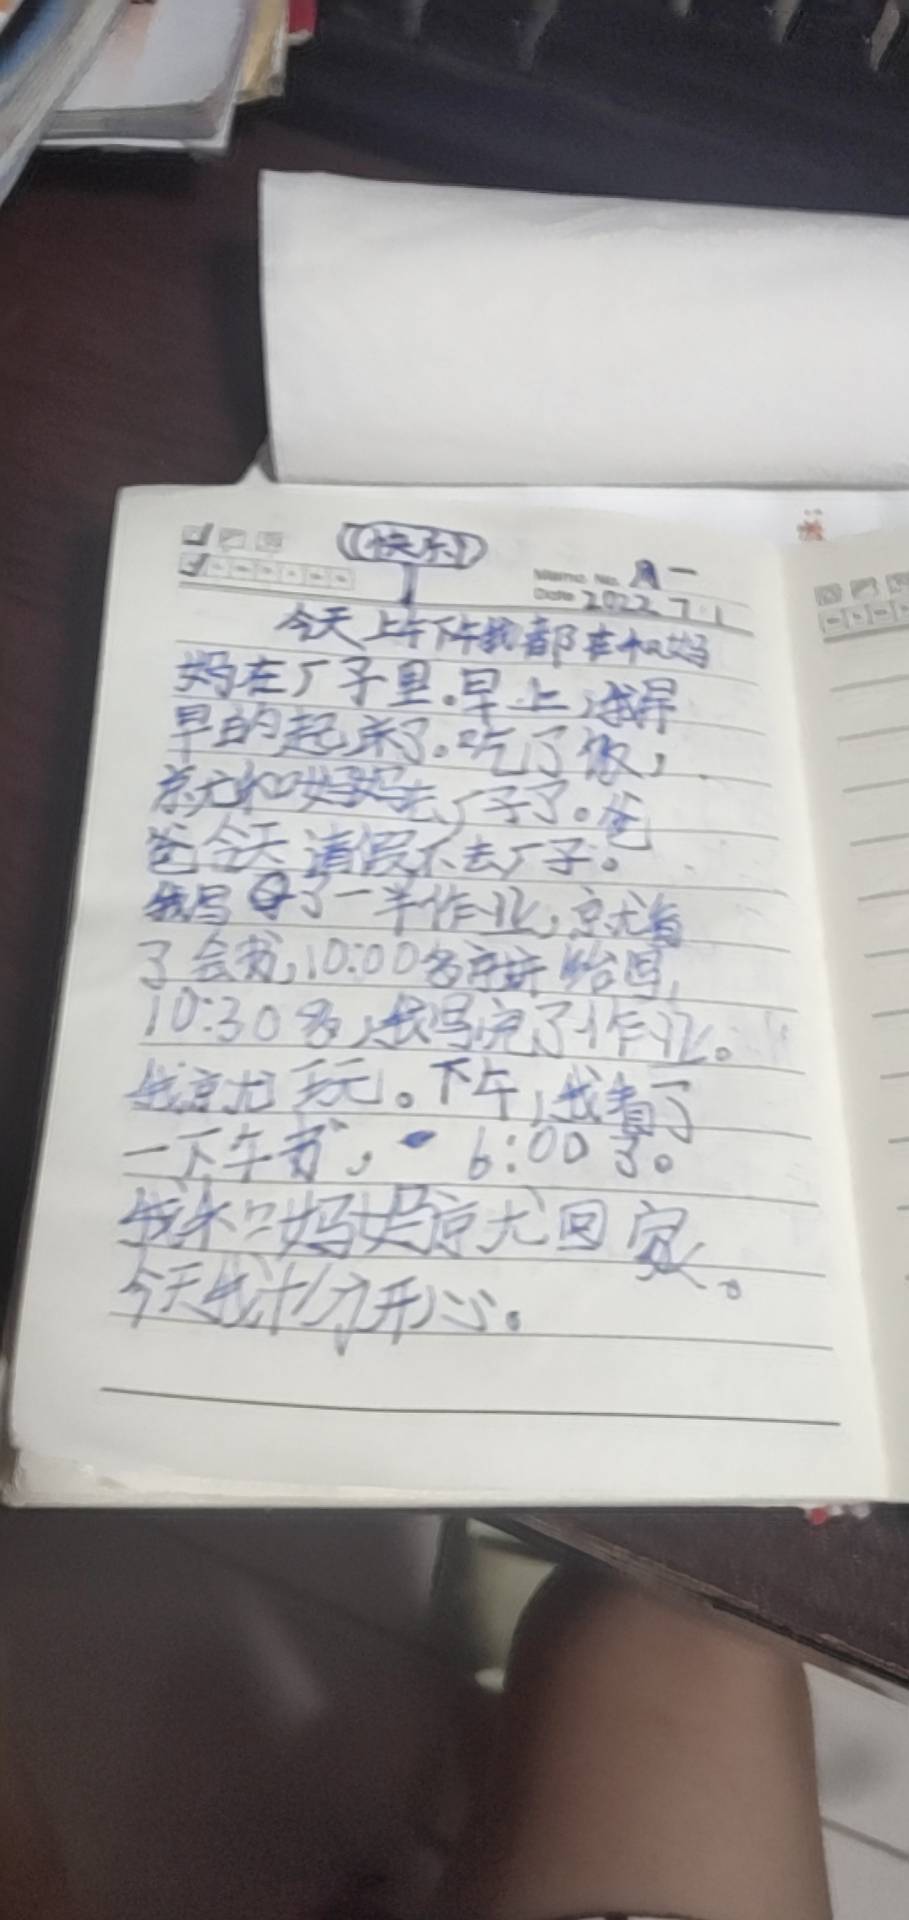 《快乐》
Memo No. 周一
Date 2022 7 1
今天上午下午我都在和妈
妈在厂子里.早上,我早
早的起来了.吃了饭,
就和妈妈去厂子了。爸
爸今天请假不去厂子。
我写了一半作业,就看
了会书,10:00多就开始写,
10:30多,我写完了作业。
我就玩。下午,我看了
一下午书, 6:00了。
我和妈妈就回家。
今天我十分开心。